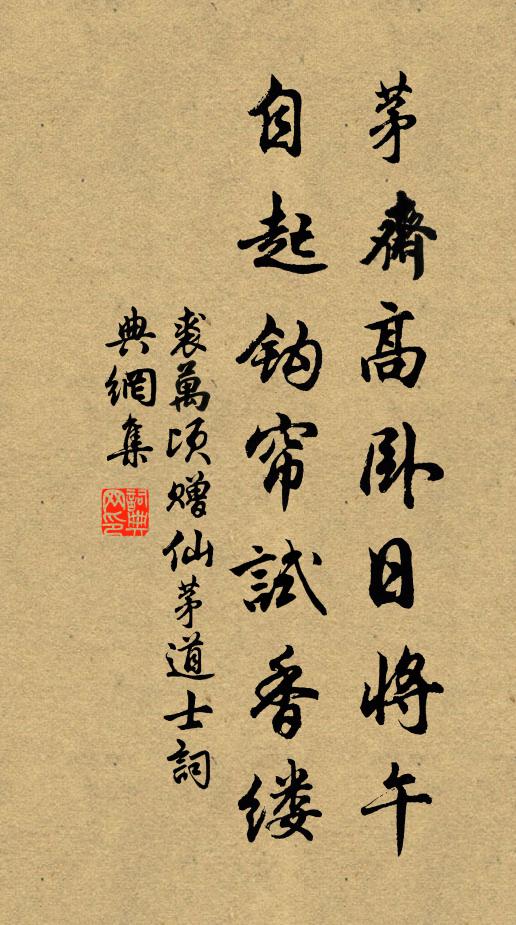 茅齋高卧日將午
自起鈎帘試香缕
裘萬頃贈仙茅道士詞
典網集
詞典
网印